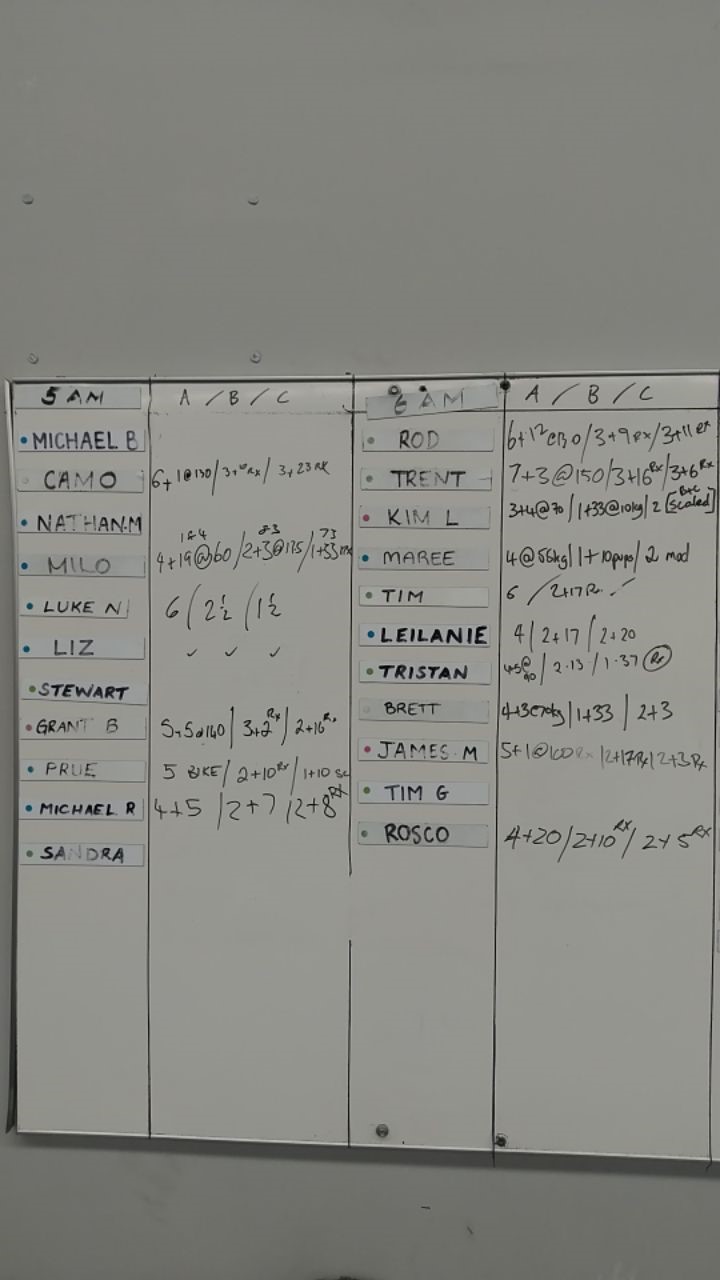 5 AM A / B / C
MICHAEL B
CAMO 6+1@130 / 3+ Rx / 3+23 RX
NATHAN.M
184 83 73
MILO 4+19@60 / 2+3@135 / 1+33
LUKE N 6 / 2½ / 1½
LIZ ✓ ✓ ✓
STEWART
GRANT B 5+5@140 / 3+2 Rx / 2+16 Rx
PRUE 5 BIKE / 2+10 Rx / 1+10 sc
MICHAEL R 4+5 / 2+7 / 2+8 RX
SANDRA
6 AM A / B / C
ROD 6+12 / 3+9 RX / 3+11 RX
TRENT 7+3@150 / 3+16 Rx / 3+6 Rx
KIM L 3+4@70 / 1+33@10kg / 2 [B+C Scaled]
MAREE 4@55kg / 1+10 / 2 mod
TIM 6 / 2+17 Rx ✓
LEILANIE 4 / 2+17 / 2+20
TRISTAN / 2.13 / 1.37 Rx
BRETT / 1+33 / 2+3
JAMES M 5+1@100 Rx / 2+17 Rx / 2+3 Rx
TIM G
ROSCO 4+20 / 2+10 RX / 2+5 RX